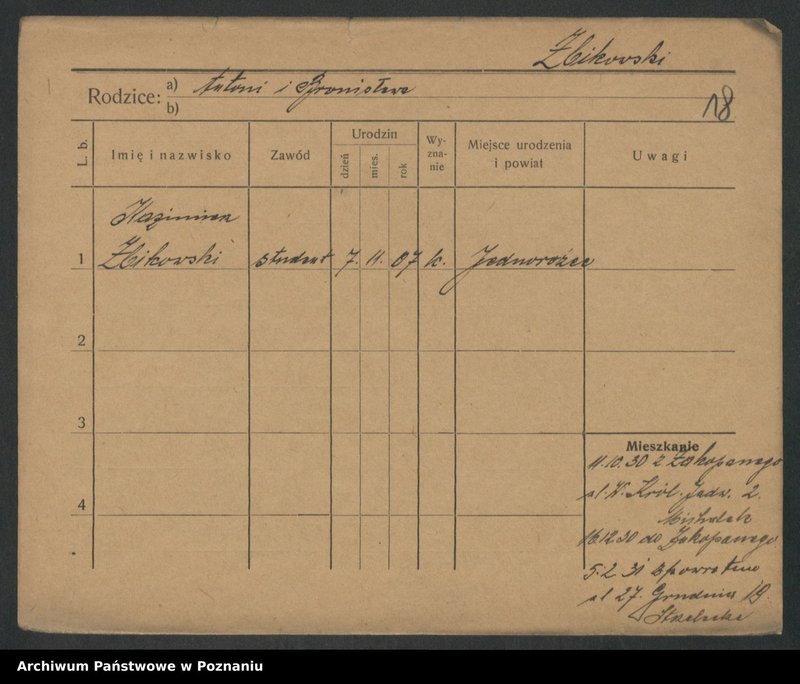 Żbikowski
Rodzice: a) Antoni i Bronisława
b)
18
L. b.
Imię i nazwisko
Zawód
Urodzin
dzień
mies.
rok
Wy-
zna-
nie
Miejsce urodzenia
i powiat
Uwagi
Kazimierz
1 Żbikowski student 7. 11. 07 k. Jednorożec
2
3
4
Mieszkanie
11.10.30 z Zakopanego
ul. W. Król. Jadw. 2.
16.12.30 do Zakopanego
5.2.31 z powrotem
ul 27. Grudnia 19.
Archiwum Państwowe w Poznaniu